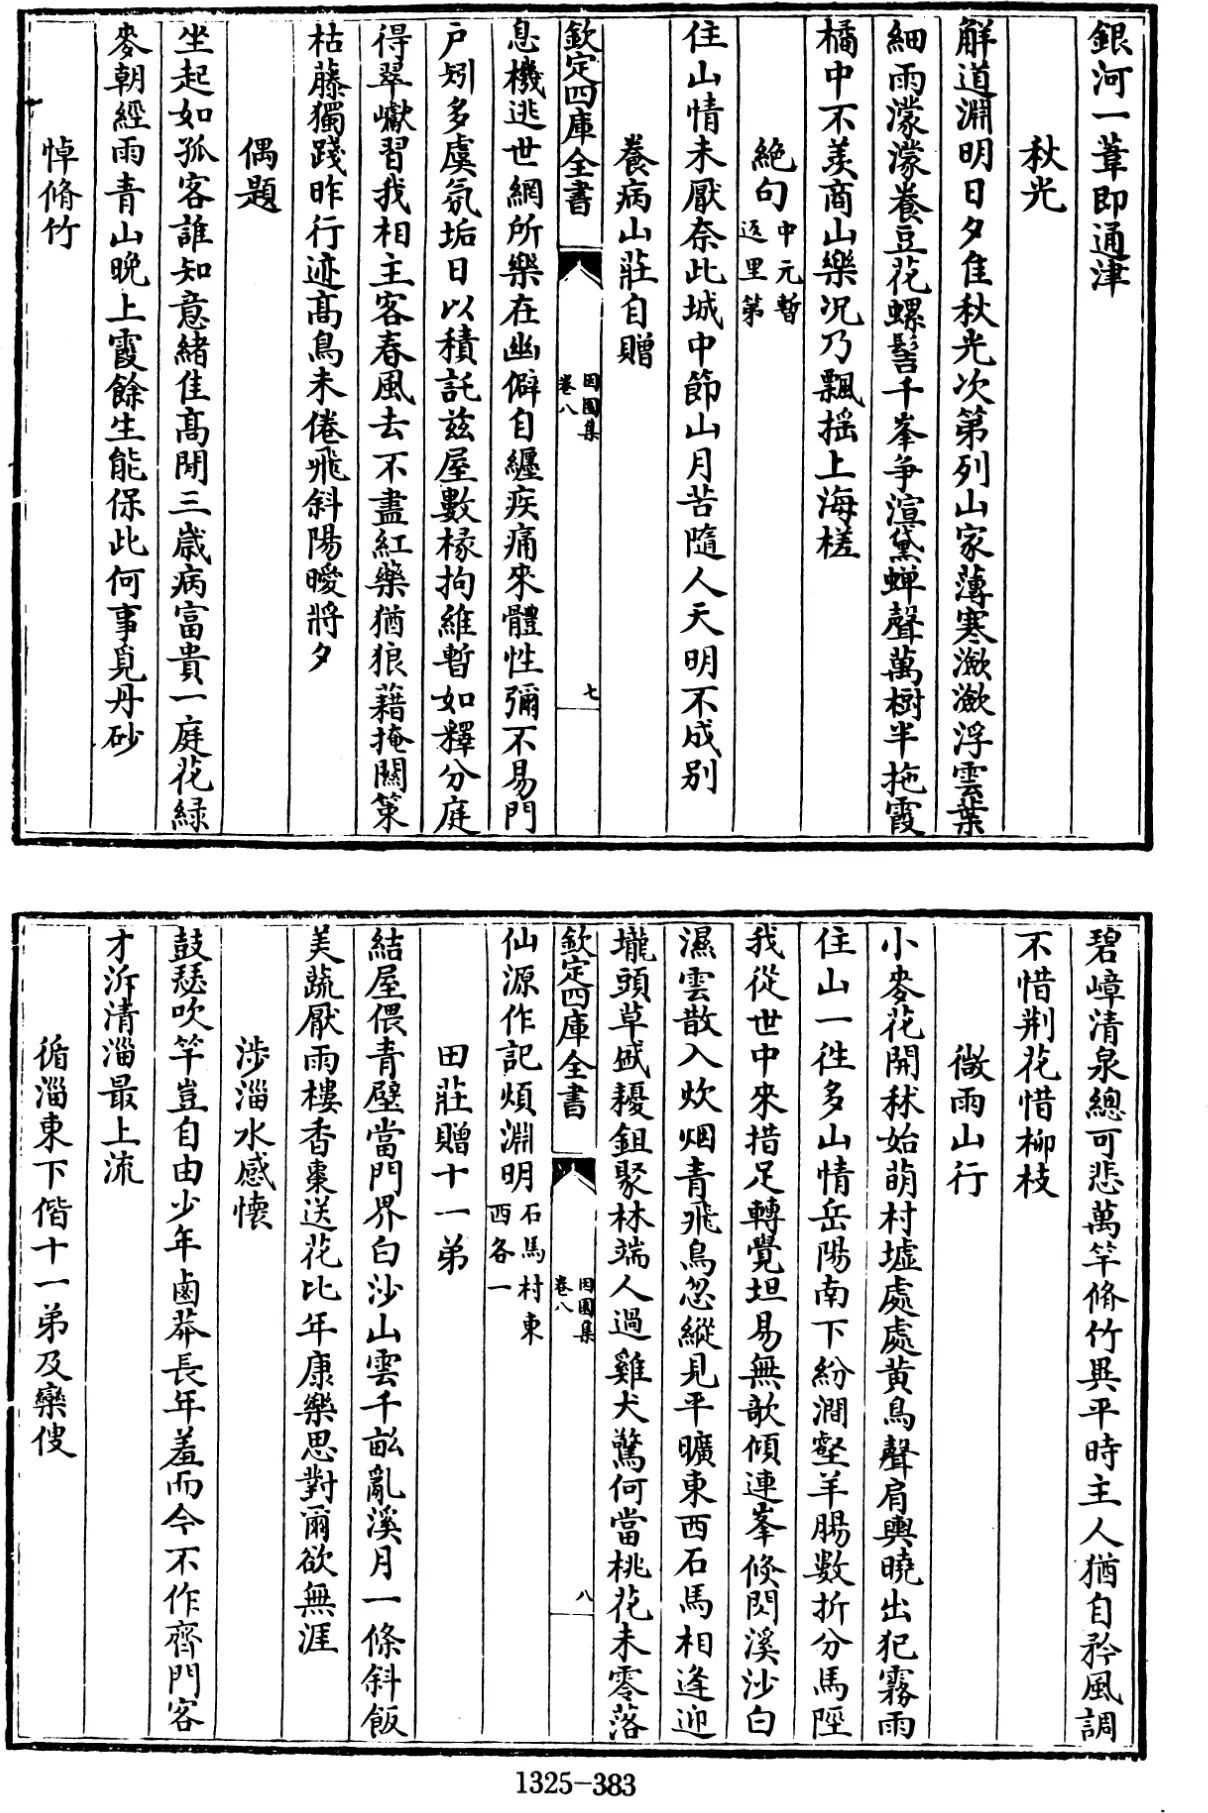 銀河一葦即通津
秋光
解道淵明日夕佳秋光次第列山家薄寒潋潋浮雲葉
細雨濛濛養豆花螺髻千峯爭渲黛蟬聲萬樹半拖霞
橘中不羡商山樂况乃飄揺上海槎
絶句中元暫
返里第
住山情未厭奈此城中節山月苦隨人天明不成别
養病山莊自贈
欽定四庫全書
因園集
卷八
七
息機逃世網所樂在幽僻自纒疾痛來體性彌不易門
户矧多虞氛垢日以積託兹屋數椽拘維暫如釋分庭
得翠巘習我相主客春風去不盡紅藥猶狼藉掩關策
枯藤獨踐昨行迹髙鳥未倦飛斜陽曖將夕
偶題
坐起如孤客誰知意緒佳髙閒三歳病富貴一庭花緑
麥朝經雨青山晚上霞餘生能保此何事覓丹砂
悼脩竹
碧嶂清泉總可悲萬竿脩竹異平時主人猶自矜風調
不惜荆花惜柳枝
微雨山行
小麥花開秫始萌村墟處處黄鳥聲肩輿曉出犯霧雨
住山一徃多山情岳陽南下紛澗壑羊腸數折分馬陘
我從世中來措足轉覺坦易無欹傾連峯倐閃溪沙白
濕雲散入炊烟青飛鳥忽縱見平曠東西石馬相逢迎
壠頭草盛耰鉏聚林端人過雞犬驚何當桃花未零落
欽定四庫全書
因園集
卷八
八
仙源作記煩淵明石馬村東
西各一
田莊贈十一弟
結屋偎青壁當門界白沙山雲千畝亂溪月一條斜飯
美蔬厭雨樓香棗送花比年康樂思對爾欲無涯
渉淄水感懷
鼓瑟吹竽豈自由少年鹵莽長年羞而今不作齊門客
才泝清淄最上流
循淄東下偕十一弟及欒傁
1325-383